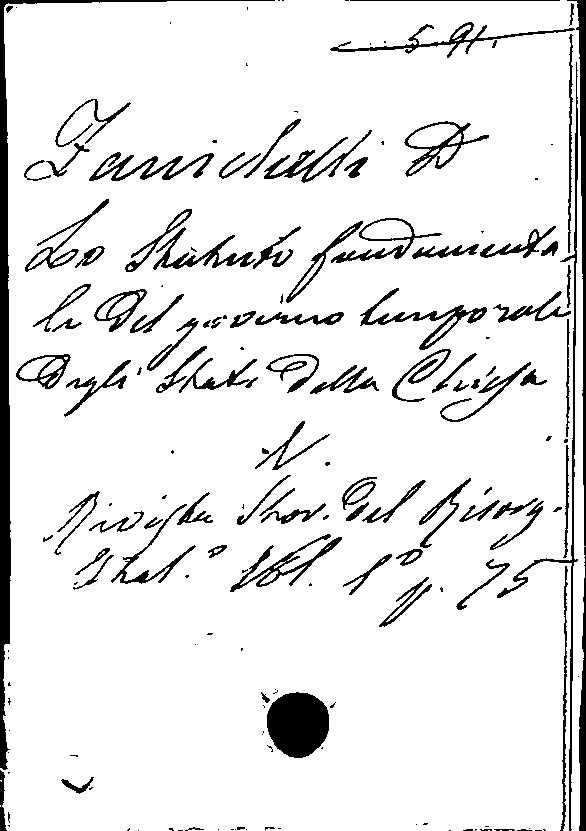 5 91.
Zanichelli D
Lo Statuto fondamenta
le del governo temporale
Degli Stati della Chiesa
V.
Rivista Stor. del Risorg.
Ital.º Vol. 1º p. 75